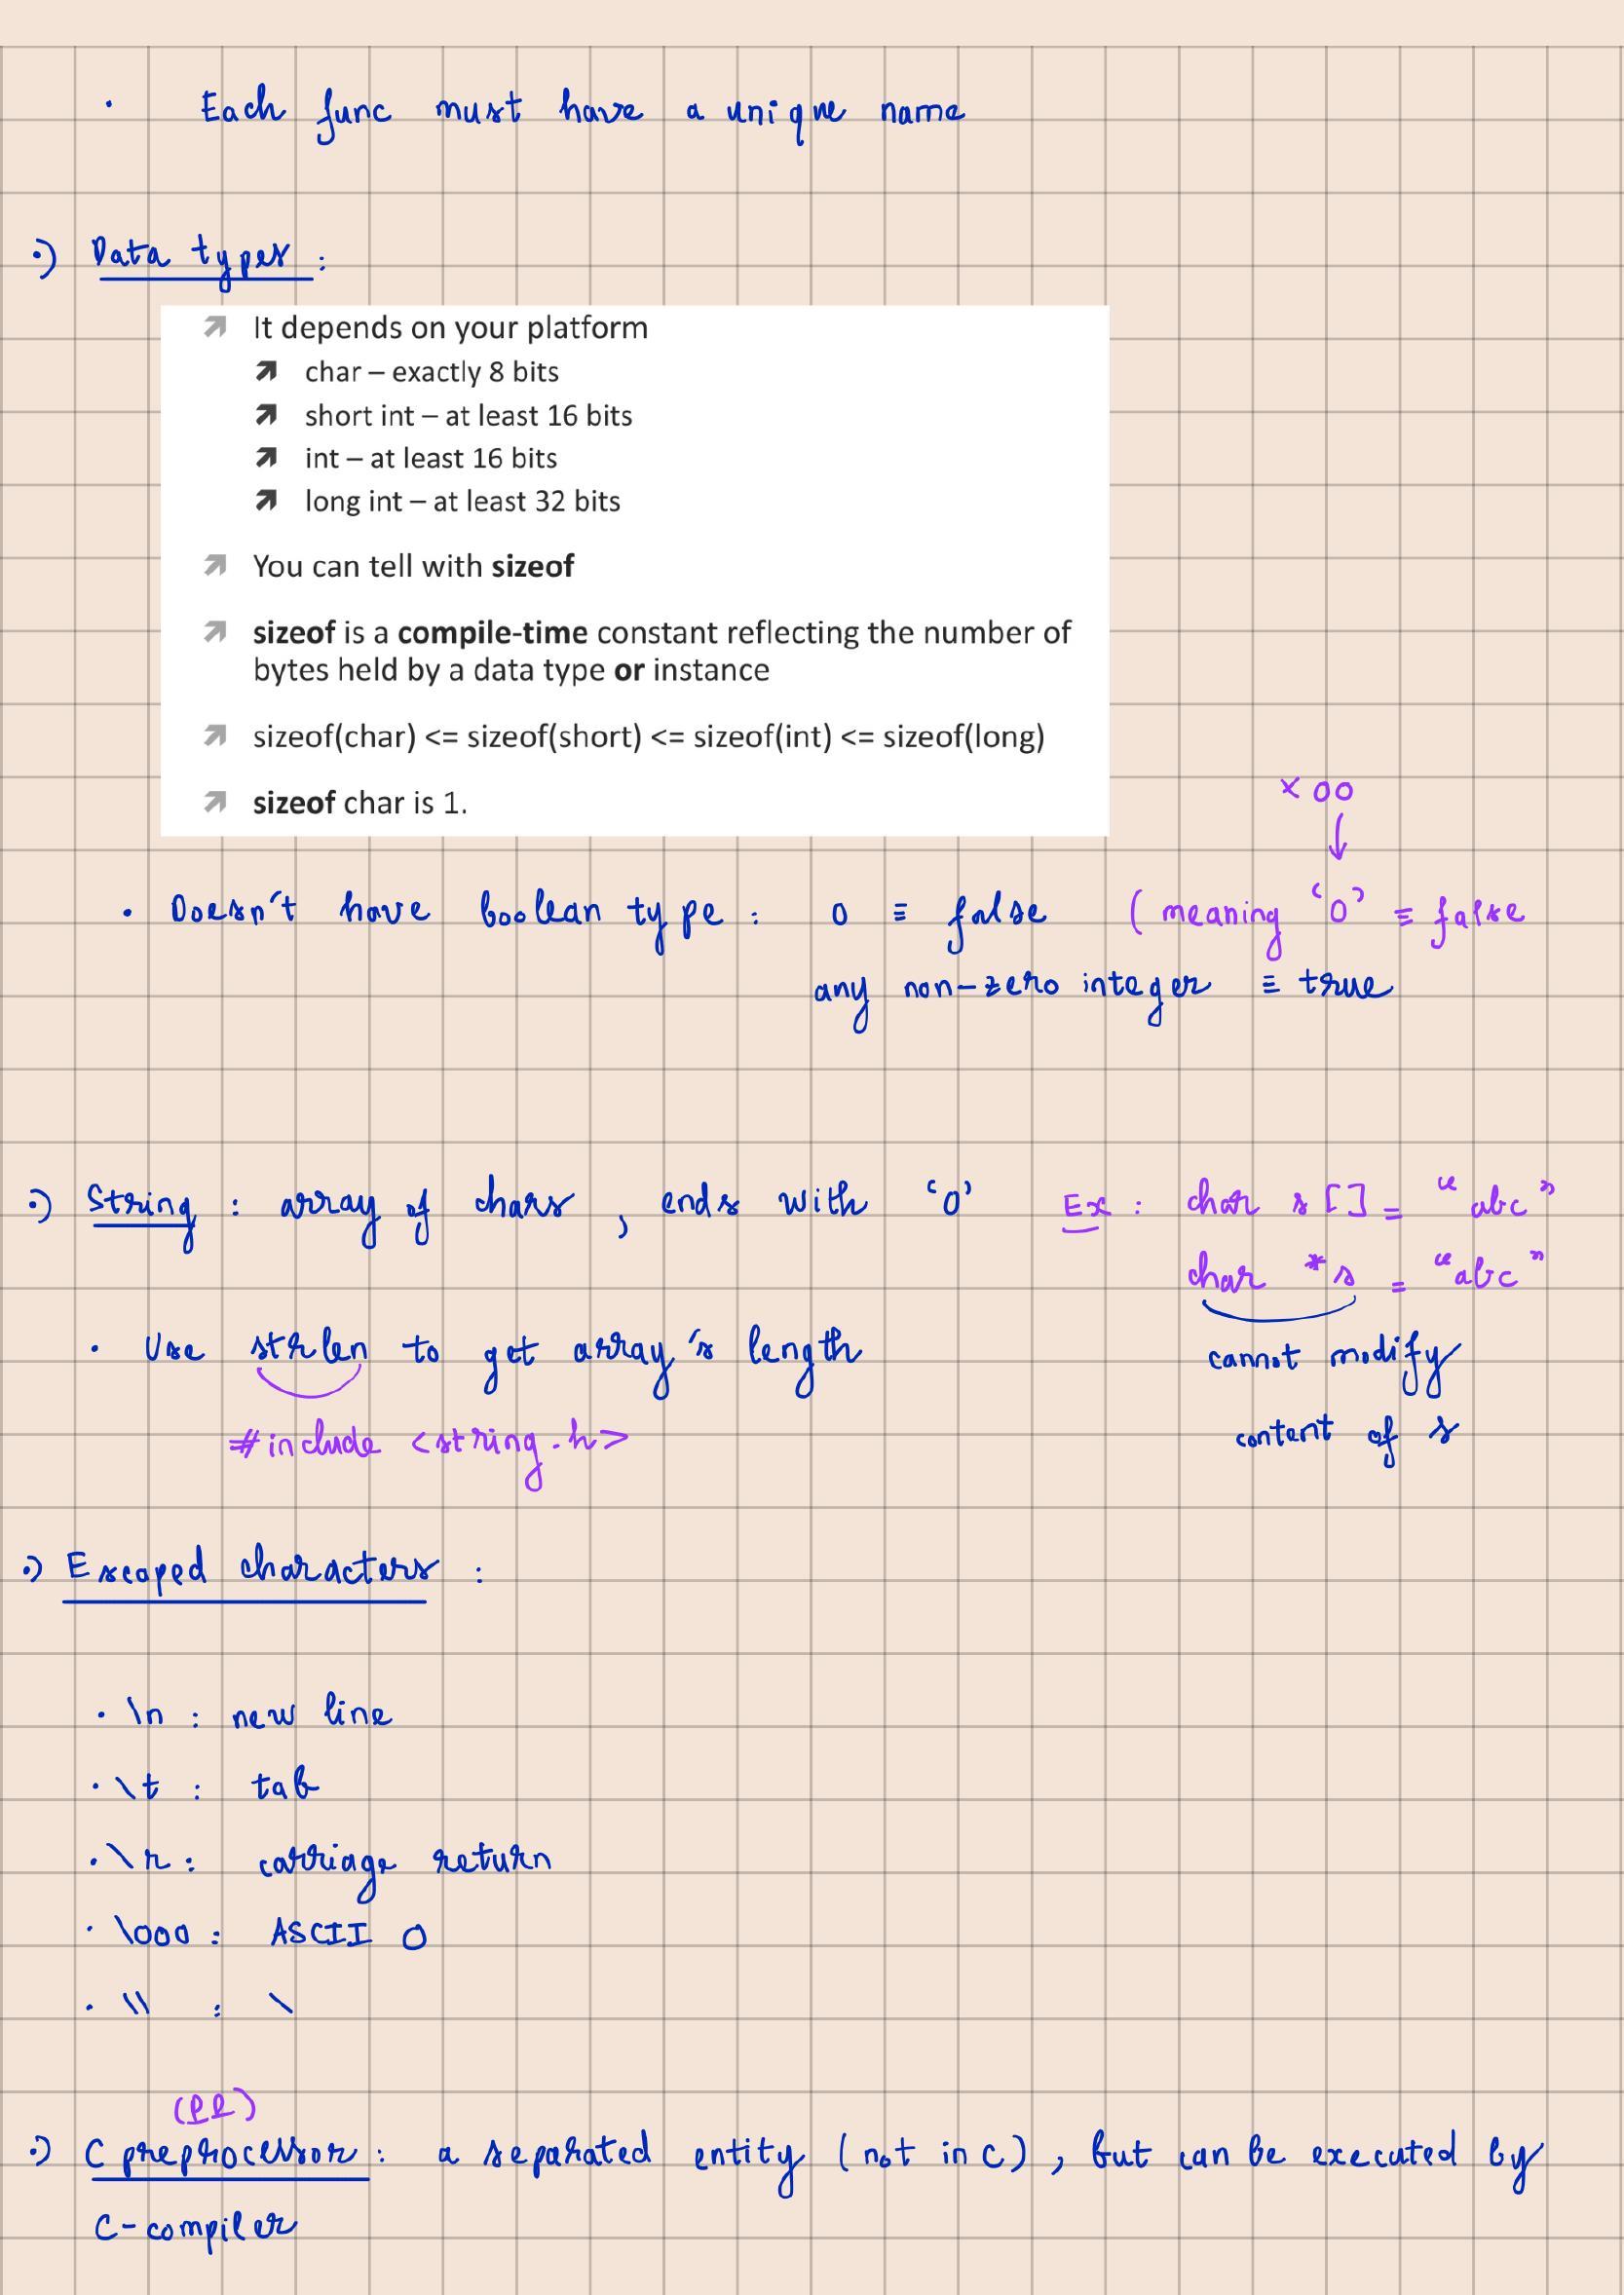 • Each func must have a unique name
•) Data types :
It depends on your platform
char – exactly 8 bits
short int – at least 16 bits
int – at least 16 bits
long int – at least 32 bits
You can tell with sizeof
sizeof is a compile-time constant reflecting the number of
bytes held by a data type or instance
sizeof(char) <= sizeof(short) <= sizeof(int) <= sizeof(long)
sizeof char is 1.
x00
• Doesn't have boolean type : 0 ≡ false ( meaning '0' ≡ false
any non-zero integer ≡ true
•) String : array of chars , ends with '0' Ex : char s [] = "abc"
char *s = "abc"
• Use strlen to get array's length
cannot modify
#include <string.h>
content of s
•) Escaped characters :
• \n : new line
• \t : tab
• \r : carriage return
• \000 : ASCII 0
• \\ : \
(PP)
•) C preprocessor : a separated entity ( not in C ) , but can be executed by
C-compiler